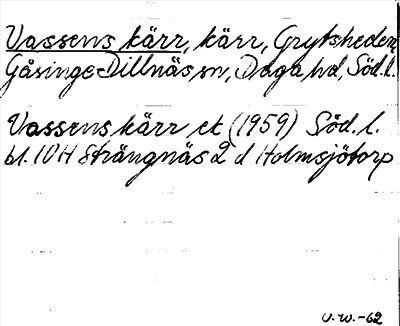 Vassens kärr, kärr, Grytsheden,
Gåsinge-Dillnäs sn, Daga hd, Söd. l.
Vassens kärr ek (1959) Söd. l.
bl. 10H Strängnäs 2 d Holmsjötorp
U.W.-62